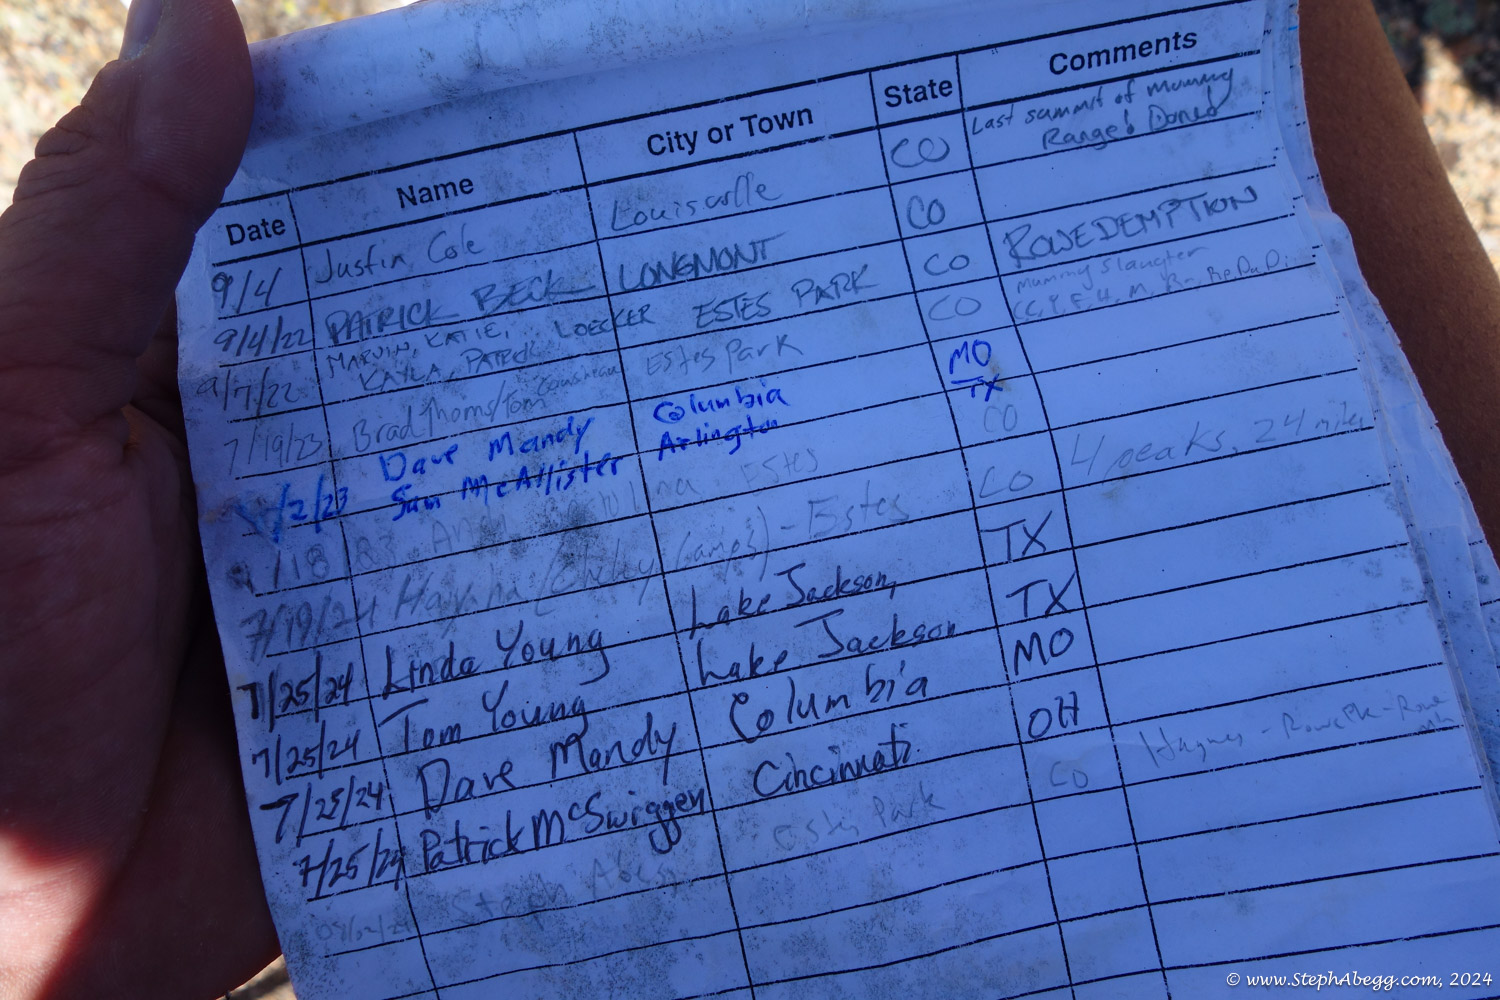 Date Name City or Town State Comments
9/4 Justin Cole Louisville CO Last summit of Mummy
Range! Done!
9/4/22 PATRICK BECK LONGMONT CO
9/7/22 MARVIN, KATIE, LOECKER ESTES PARK CO ROWEDEMPTION
KAYLA, PATRICK
7/19/23 Brad Thoms/Tom Estes Park CO Mummy Slaughter
/2/23 Dave Mandy Columbia MO
Sam McAllister Arlington TX
/18/23 Estes CO 4 peaks, 24 miles
7/19/24 - Estes CO
7/25/24 Linda Young Lake Jackson, TX
7/25/24 Tom Young Lake Jackson TX
7/25/24 Dave Mandy Columbia MO
7/25/24 Patrick McSwiggen Cincinnati OH
Steph Abegg Estes Park CO Hagues - Rowe Pk - Rowe
© www.StephAbegg.com, 2024